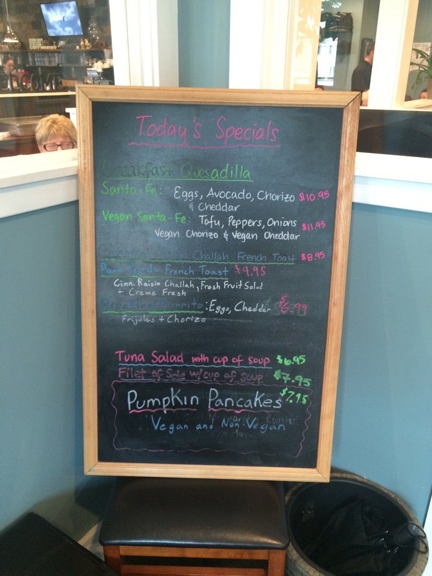 Today's Specials
Breakfast Quesadilla
Santa-Fe: Eggs, Avocado, Chorizo $10.95
& Cheddar
Vegan Santa-Fe: Tofu, Peppers, Onions $11.95
Vegan Chorizo & Vegan Cheddar
Challah French Toast $8.95
French Toast $9.95
Cinn. Raisin Challah, Fresh Fruit Salad
+ Creme Fresh
Burrito: Eggs, Cheddar
Frijoles + Chorizo
Tuna Salad with cup of soup
Filet of Sole w/ cup of soup $7.95
Pumpkin Pancakes $7.95
Vegan and Non-Vegan